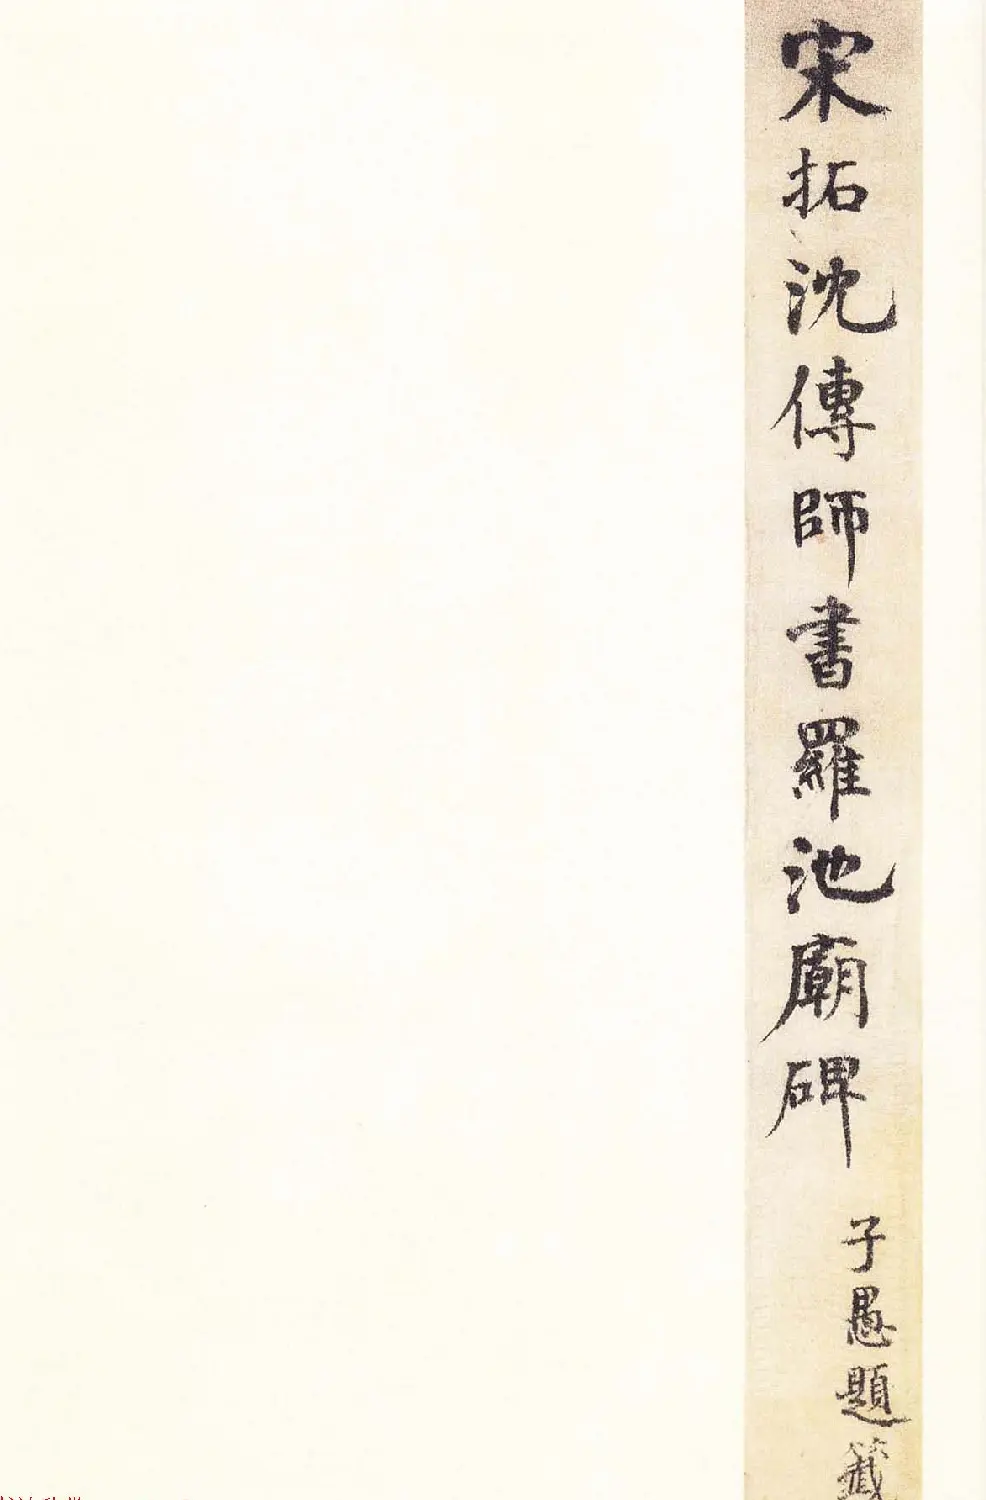 宋拓沈傳師書羅池廟碑
子愚題籤